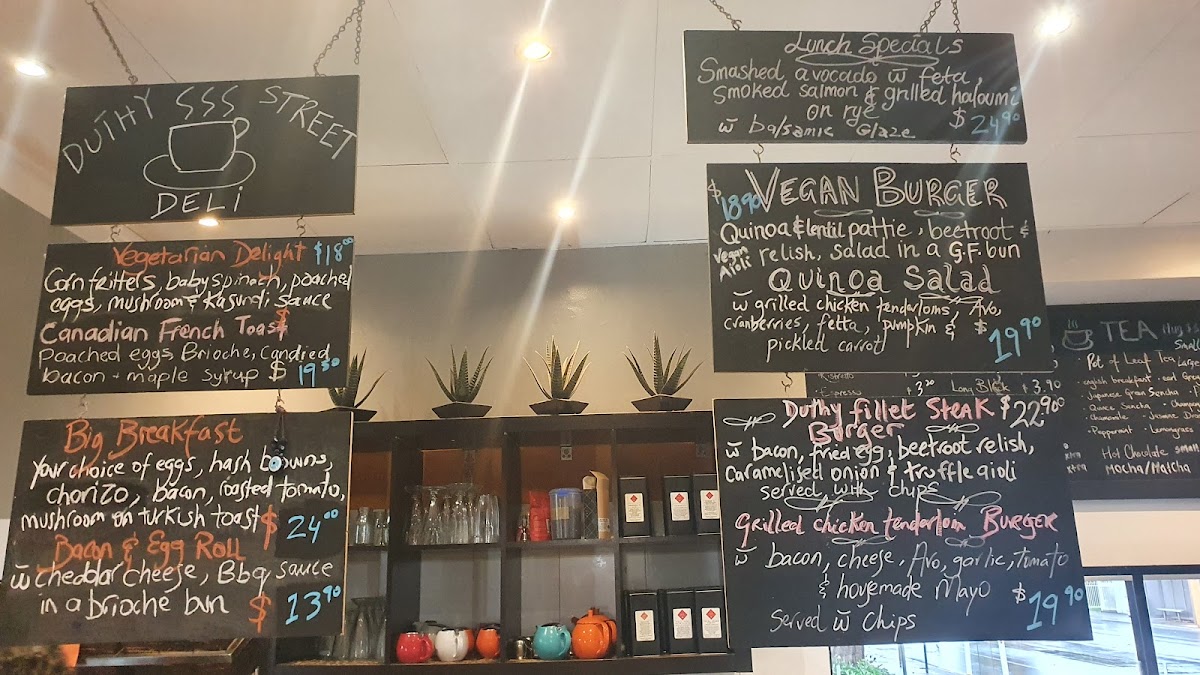 DUTHY SSS STREET
DELi
Vegetarian Delight $18⁰⁰
Corn fritters, baby spinach, poached
eggs, mushroom & Kasundi sauce
Canadian French Toast
poached eggs Brioche, Candied
bacon + maple syrup $ 19.50
Big Breakfast
your choice of eggs, hash browns,
chorizo, bacon, roasted tomato,
mushroom on turkish toast $ 24.00
Bacon & Egg Roll
w̄ cheddar cheese, BBq sauce
in a brioche bun $ 13.90
Lunch Specials
Smashed avocado w̄ feta,
smoked salmon & grilled haloumi
on rye
w̄ balsamic Glaze $24⁹⁰
$18.90 VEGAN BURGER
Quinoa & lentil pattie, beetroot &
Vegan Aioli
relish, salad in a G.F. bun
Quinoa Salad
w̄ grilled chicken tenderloins, Avo,
cranberries, fetta, pumpkin &
pickled carrot $19⁹⁰
Duthy fillet Steak $22.90
Burger
w̄ bacon, fried egg, beetroot relish,
Caramelised onion & truffle aioli
served with chips
Grilled chicken tenderloin BURGER
w̄ bacon, cheese, Avo, garlic, tomato
& housemade Mayo
Served w̄ Chips $19⁹⁰
Ristretto
Espresso +3.20
Long Black +3.90
TEA
Small
Pot of Leaf Tea Large
english breakfast · earl Grey
Japanese Green Sencha
Quince Sencha
Chamomile
Peppermint · Lemongrass
Hot Chocolate small
Mocha/Matcha